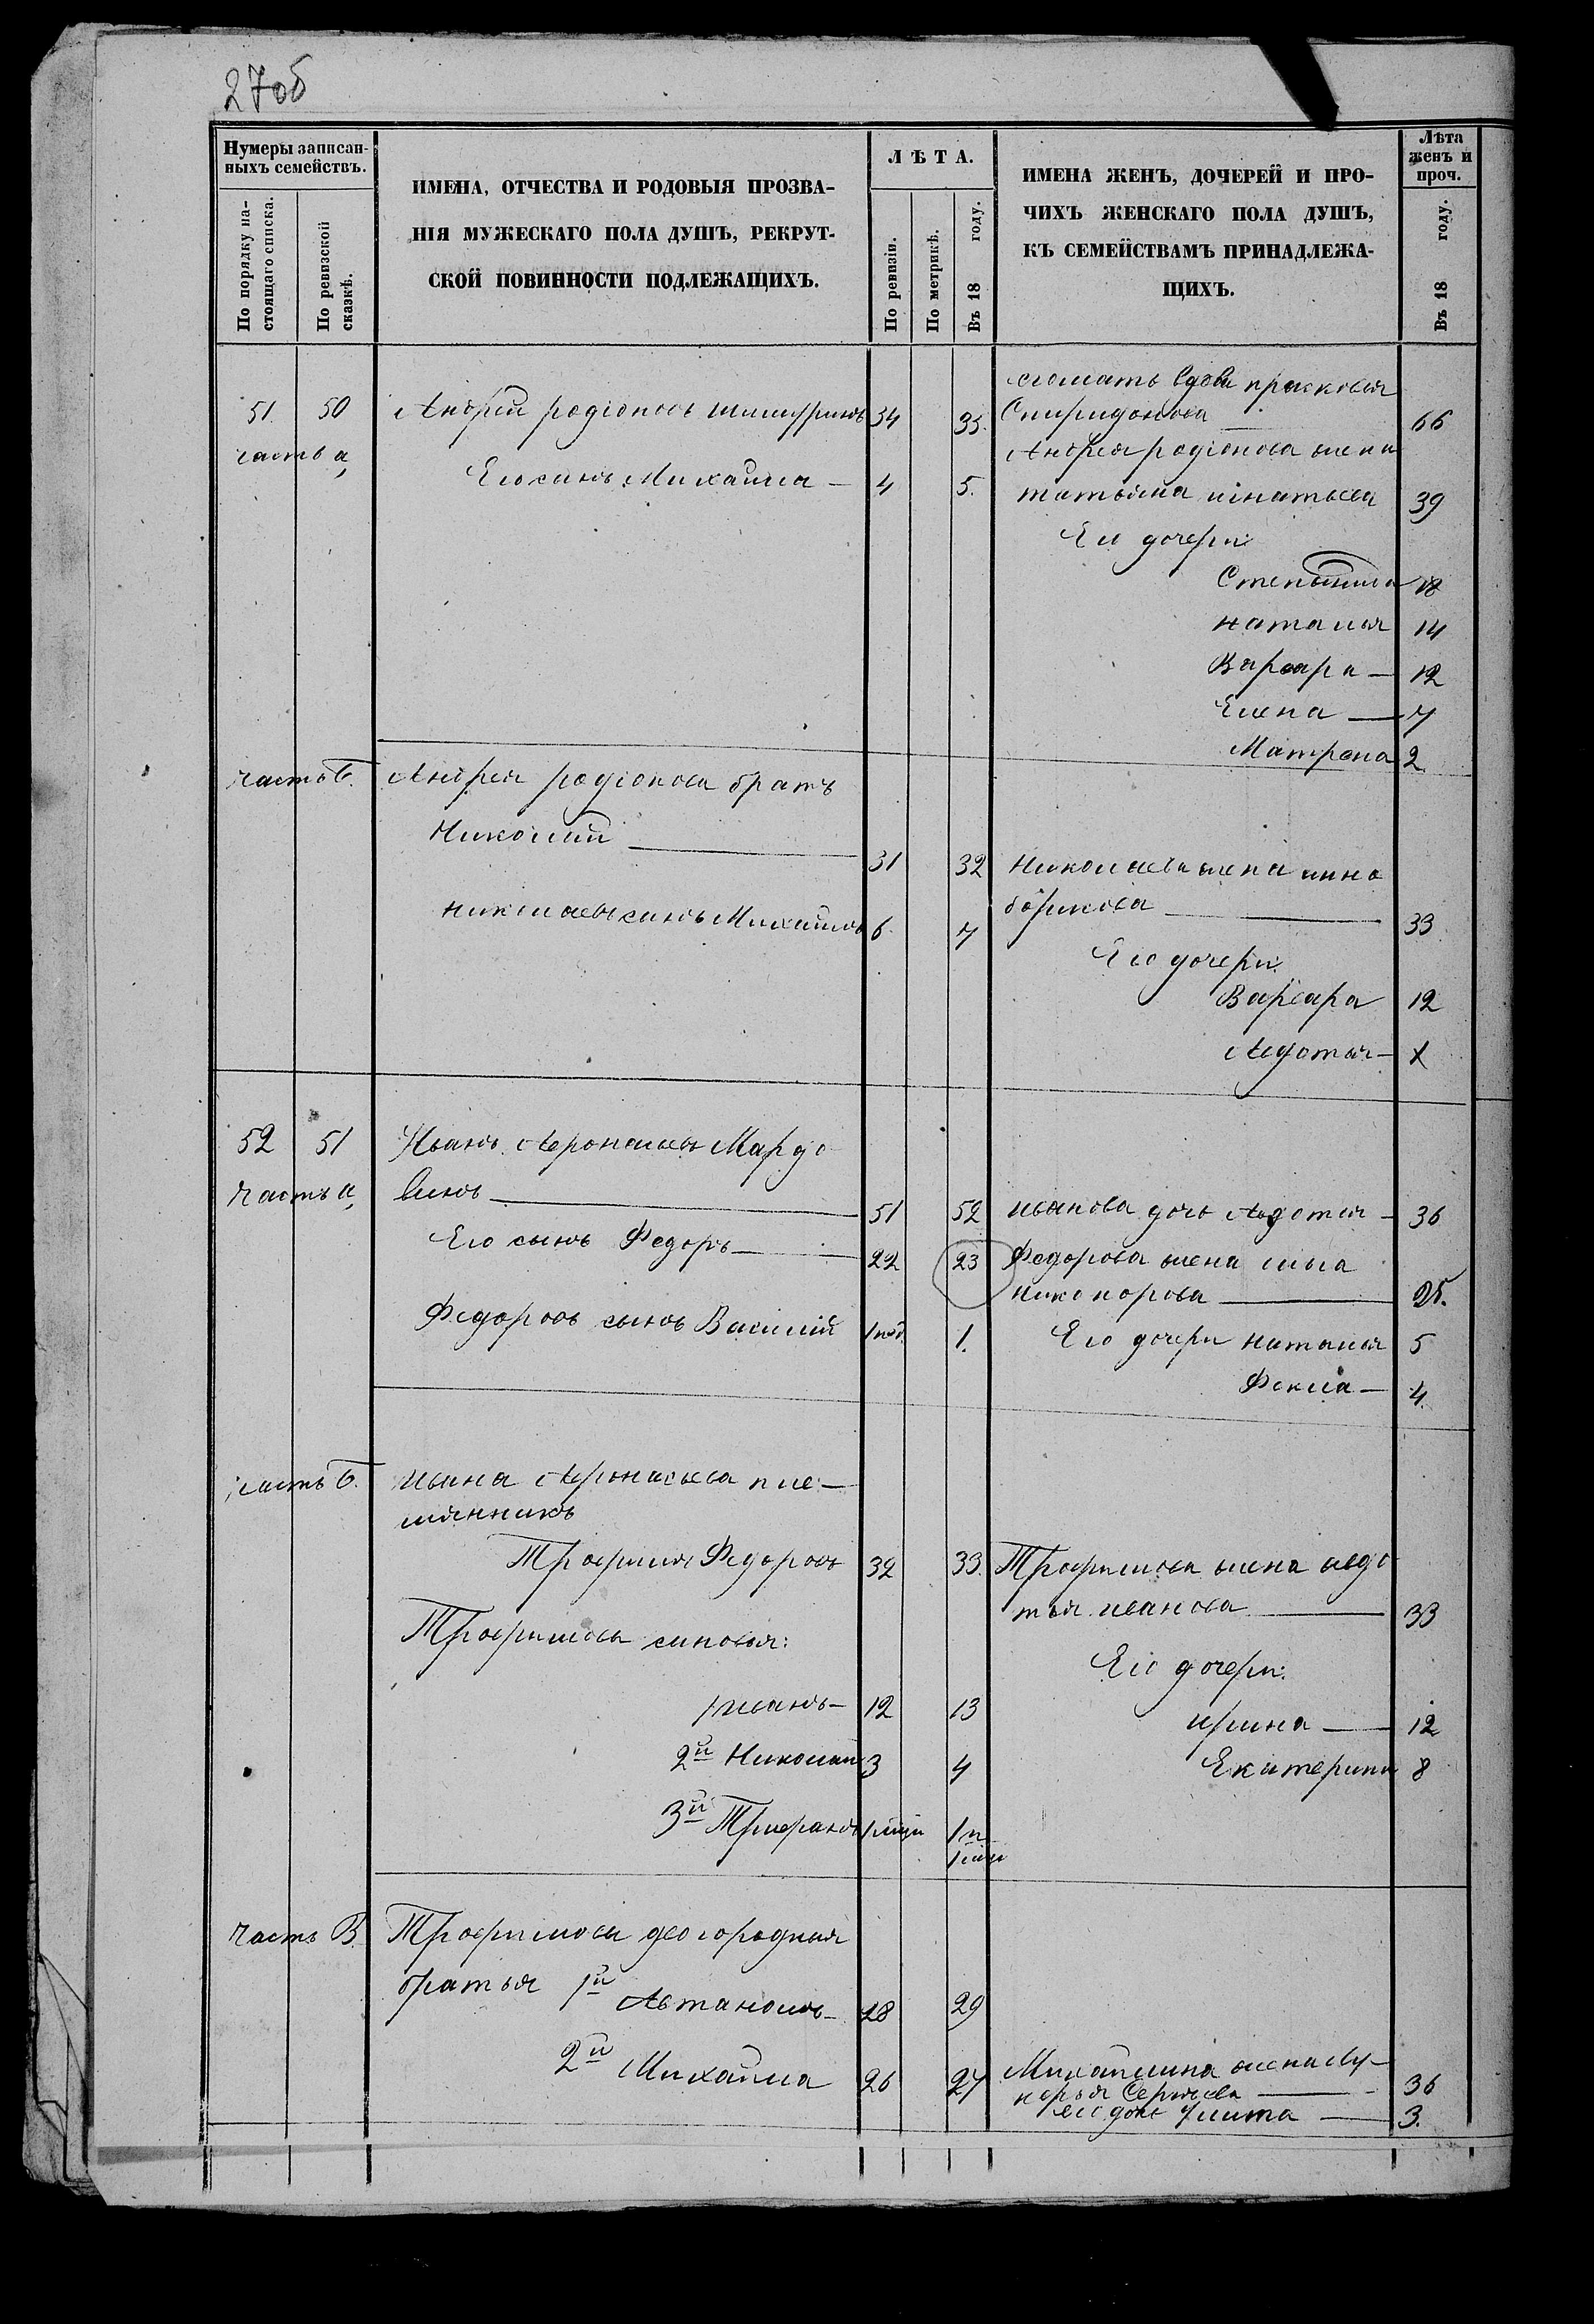 27об
Нумеры записан-
ныхъ семействъ.
По порядку на-
стоящаго списка.
По ревизской
сказкѣ.
ИМЕНА, ОТЧЕСТВА И РОДОВЫЯ ПРОЗВА-
НІЯ МУЖЕСКАГО ПОЛА ДУШЪ, РЕКРУТ-
СКОЙ ПОВИННОСТИ ПОДЛЕЖАЩИХЪ.
ЛѢТА.
По ревизіи.
По метрикѣ.
Въ 18 году.
ИМЕНА ЖЕНЪ, ДОЧЕРЕЙ И ПРО-
ЧИХЪ ЖЕНСКАГО ПОЛА ДУШЪ,
КЪ СЕМЕЙСТВАМЪ ПРИНАДЛЕЖА-
ЩИХЪ.
Лѣта
женъ и
проч.
Въ 18 году.
мать вдова прасковья
51. 50 Андрей родіоновъ 34 35. Спиридонова 66
часть а, Андрея родіонова жена
Его сынъ Михайла 4 5. татьяна игнатьева 39
Его дочери:
18
наталья 14
Варвара 12
Елена 7
Матрена 2
часть б. Андрея родіонова братъ
Николай 31 32 Николаева жена анна
борисова 33
николаевъ сынъ Михайла 6 7
Его дочери:
Варвара 12
Авдотья
52 51 Иванъ Афонасьевъ Мардо
часть а, винъ 51 52 иванова дочь Авдотья 36
Его сынъ Федоръ 22 23 Федорова жена
никонорова 25.
Федоровъ сынъ Василій 1 1. Его дочери наталья 5
Фекла 4.
часть б. Ивана Афонасьева пле-
мянникъ
Трофимъ Федоровъ 32 33. Трофимова жена авдо
тья иванова 33
Трофимовы сыновья:
Его дочери:
1 иванъ 12 13 ирина 12
2й Николай 3 4 Екатерина 8
3й
часть В. Трофимовы двоюродныя
братья 1й Автаномъ 28 29
2й Михайла 26 27 Михайлина жена лу-
керья Сергѣева 36
его дочь Улита 3.